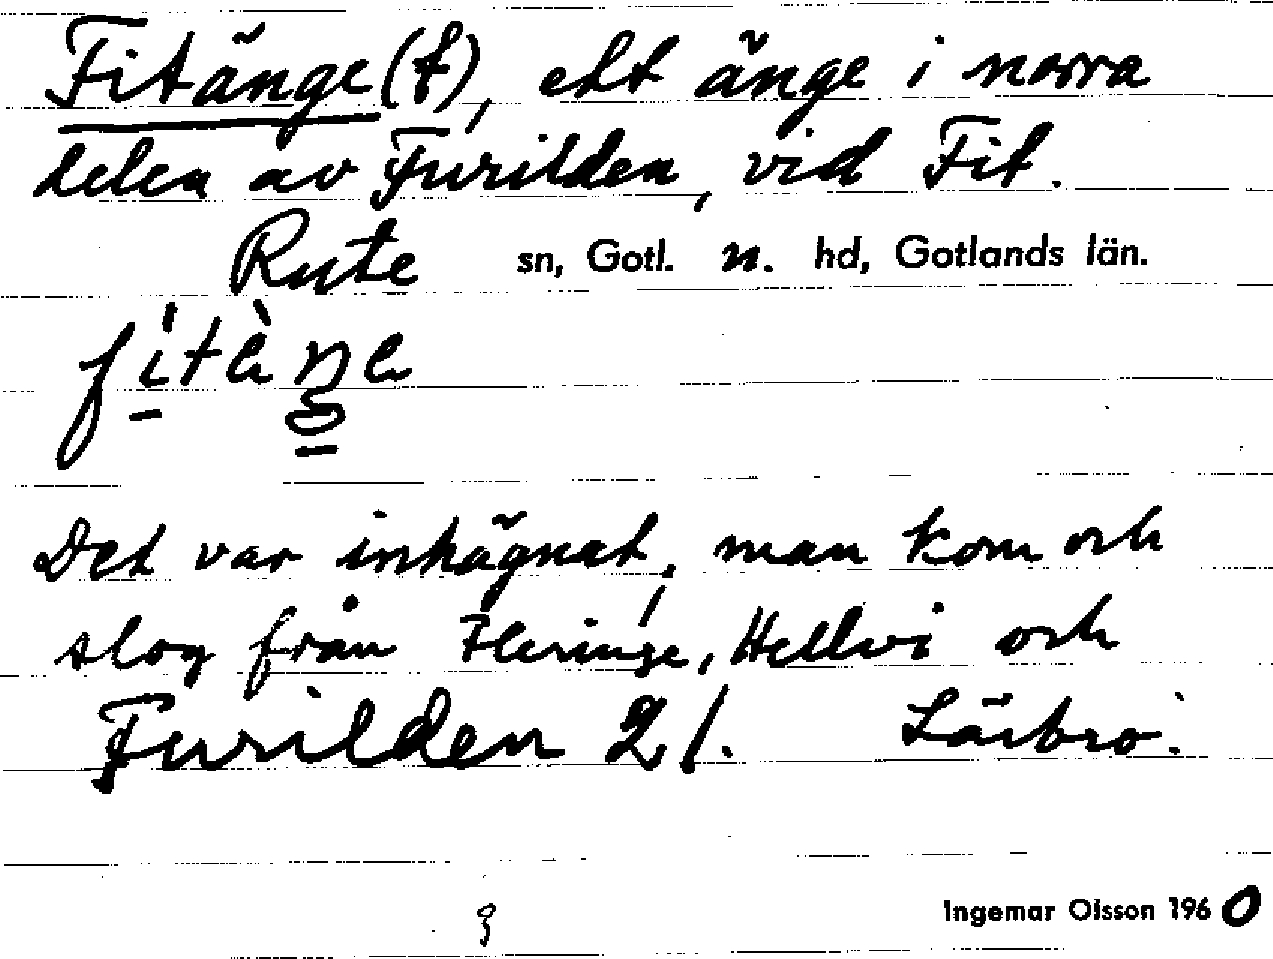 Fitänge(t), ett änge i norra
delen av Furilden, vid Fit.
Rute sn, Gotl. n. hd, Gotlands län.
Det var inhägnat, man kom och
slog från Fleringe, Hellvi och
Furilden 2/. Lärbro.
Ingemar Olsson 1960